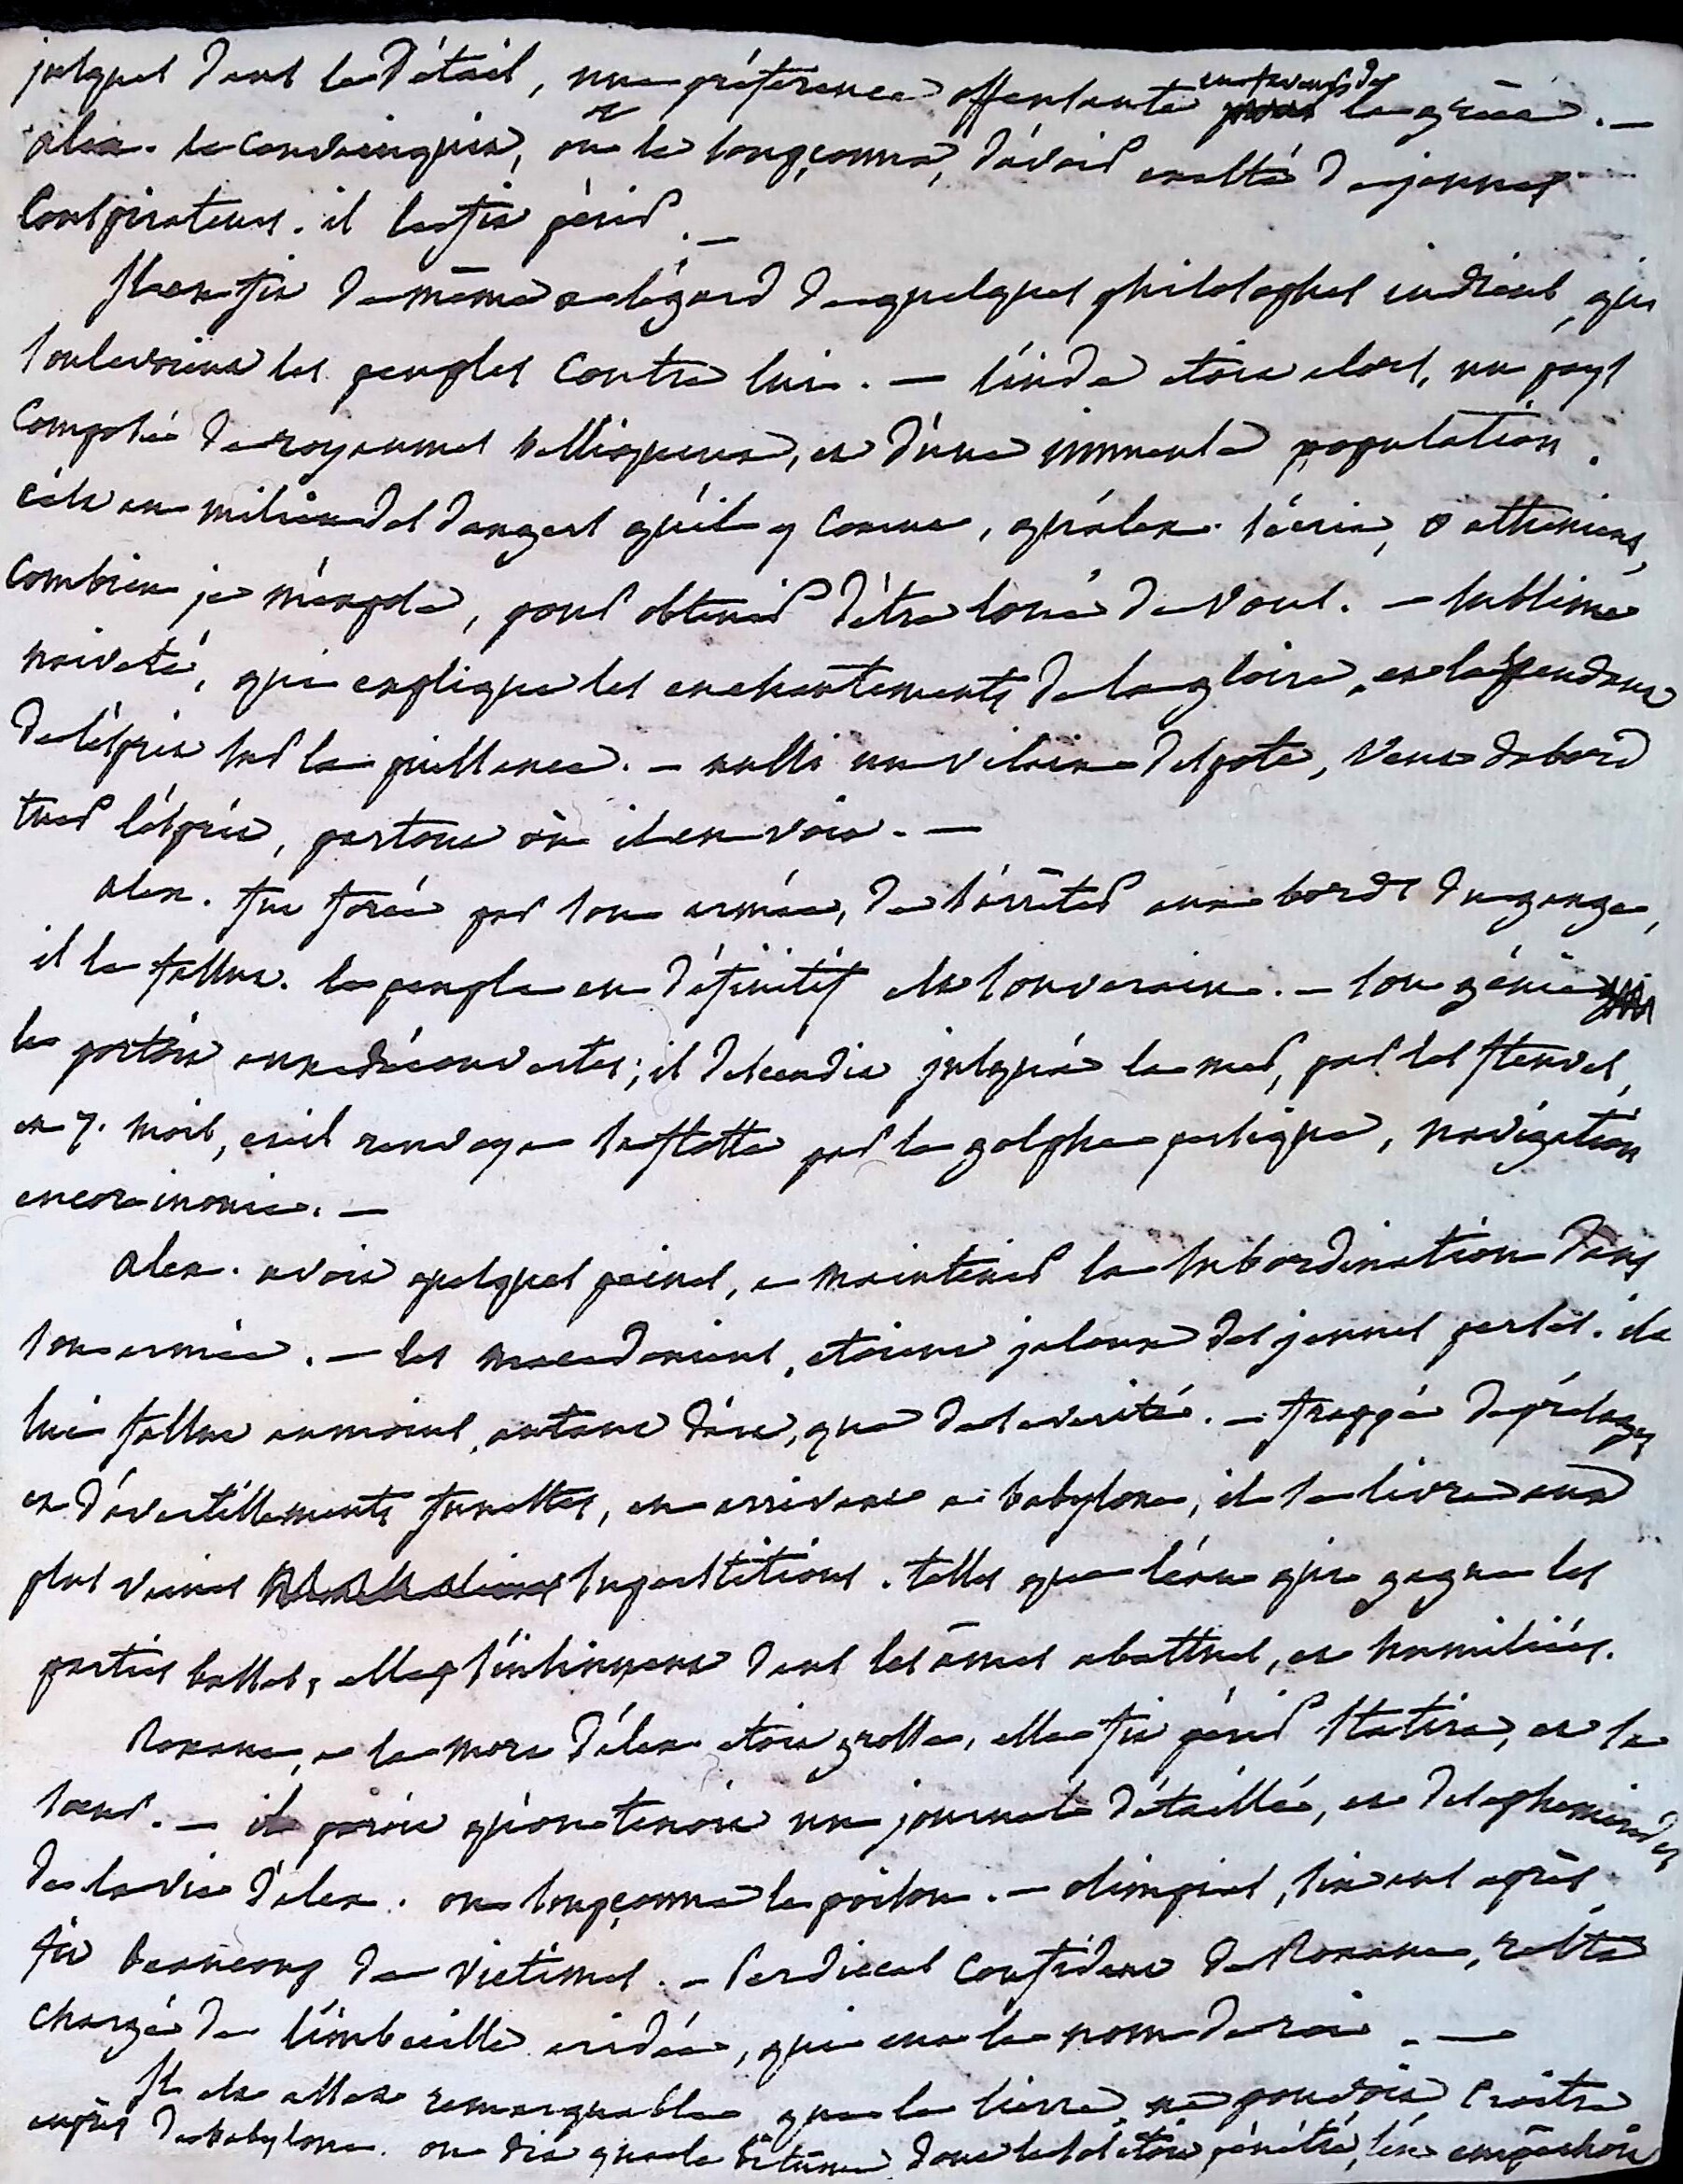 jusques dans le détail, une préférence offensante en faveur de la grèce. —
alex. le convainquit, ou le soupçonna, d'avoir exalté de jeunes
conspirateurs. il le fit périr. —
Il en fit de même a l'égard de quelques philosophes indiens, qui
soulevoient les peuples contre lui. — l'inde étoit alors, un pays
composé de royaumes belliqueux, et d'une immense population.
c'est au milieu des dangers qu'il y courut, qu'alex. s'écria, o athéniens,
combien je m'expose, pour obtenir d'être loué de vous. — sublime
naiveté, qui explique les enchantements de la gloire, et l'ascendant
de l'esprit sur la puissance. — aussi un vilain despote, veut d'abord
tuer l'esprit, partout où il en voit. —
alex. fut forcé par son armée, de s'arrêter aux bords du gange,
il le fallut. le peuple en définitif est souverain. — son génie
le portoit aux découvertes; il descendit jusqu'à la mer, par les fleuves,
en 7. mois, et il renvoya sa flotte par le golphe persique, navigation
encor inouie. —
alex. avoit quelques peines, a maintenir la subordination dans
son armée. — les macedoniens, étoient jaloux des jeunes perses. il
lui fallut au moins, autant d'art, que de sévérité. — frappé de présages
et d'avertissements funestes, en arrivant a babylone, il se livre aux
plus vaines superstitions. telles que l'eau qui gagne les
parties basses, elles s'insinuent dans les âmes abattues, et humiliées.
Roxane, a la mort d'alex. étoit grosse, elle fit périr Statira, et sa
sœur. — il paroit qu'on tenoit un journal détaillé, et des éphémérides
de la vie d'alex. on soupçonna le poison. — olimpias, six ans après
fit beaucoup de victimes. — Perdiccas confident de Roxane, resta
chargé de l'imbecille aridée, qui eut le nom de roi. —
Il est assez remarquable que le lierre ne pouvoit croître
auprès de babylone. on dit que le bitume dont le sol étoit pénétré, l'en empêchoit